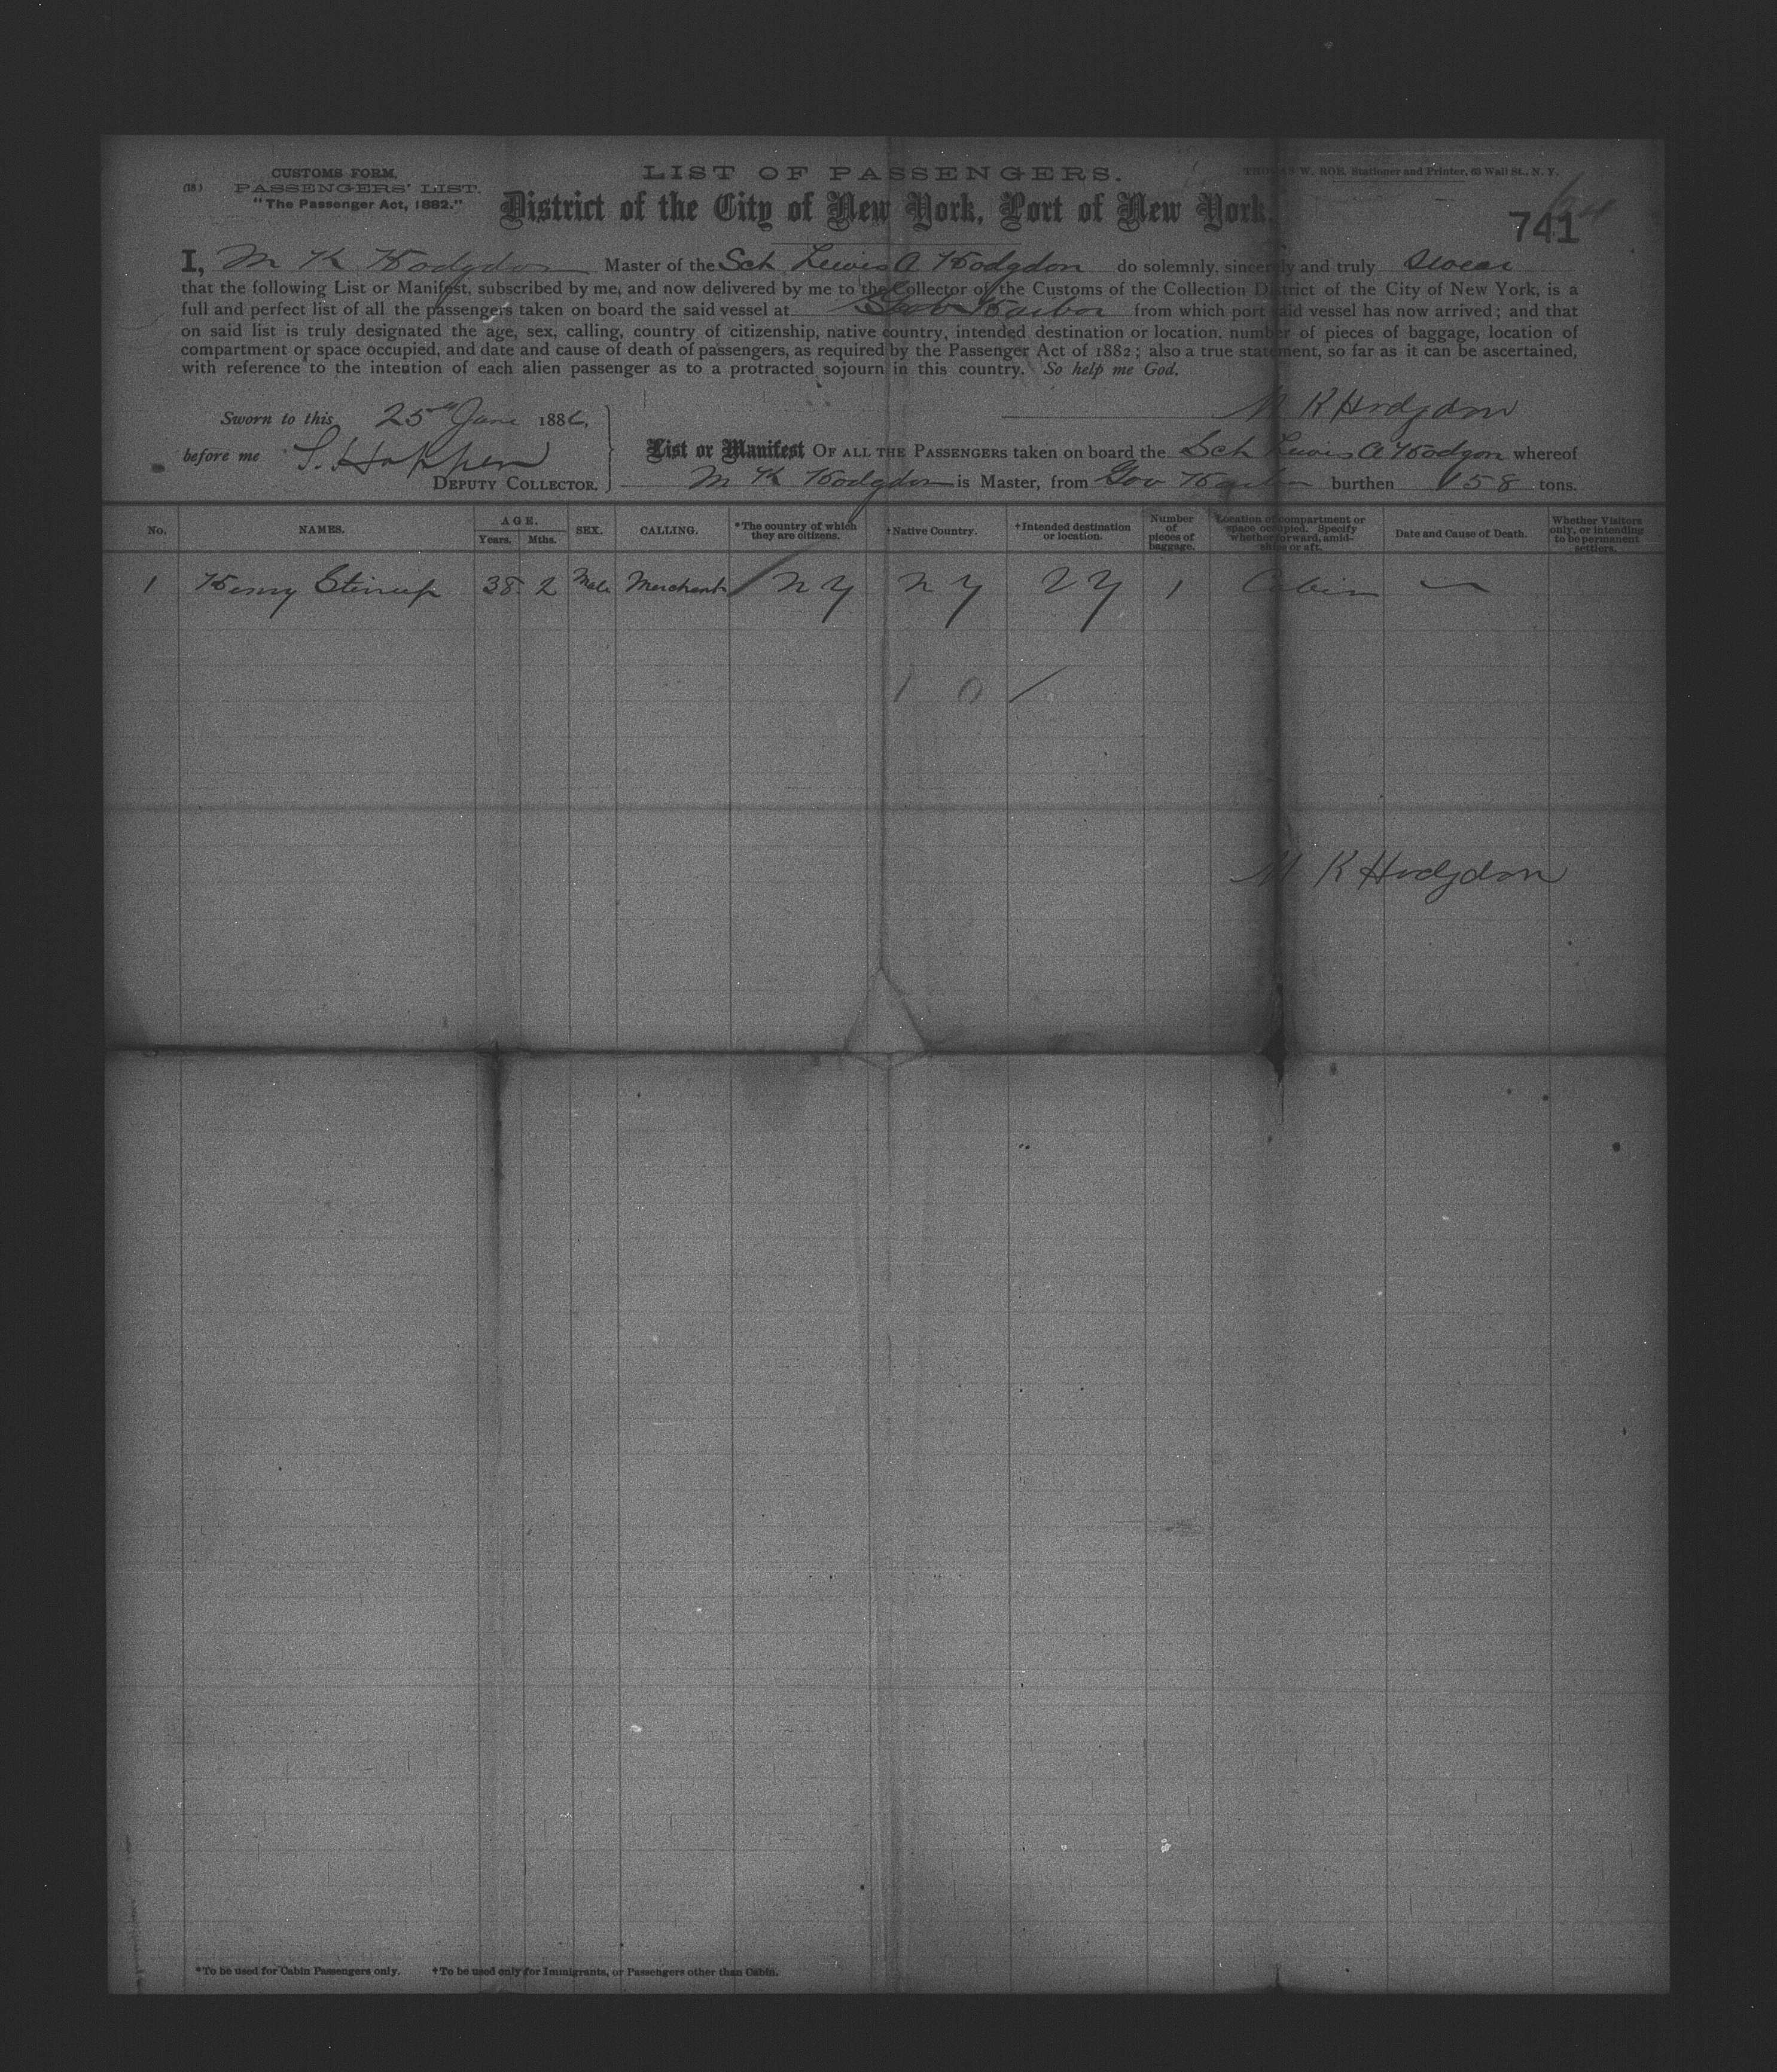 CUSTOMS FORM.
(18)
PASSENGERS' LIST.
"The Passenger Act, 1882."
LIST OF PASSENGERS.
THOMAS W. ROE, Stationer and Printer, 63 Wall St., N. Y.
District of the City of New York, Port of New York.
741
I, M K Hodgdon Master of the Sch Lewis A Hodgdon do solemnly, sincerely and truly swear
that the following List or Manifest, subscribed by me, and now delivered by me to the Collector of the Customs of the Collection District of the City of New York, is a
full and perfect list of all the passengers taken on board the said vessel at Gov Harbor from which port said vessel has now arrived; and that
on said list is truly designated the age, sex, calling, country of citizenship, native country, intended destination or location, number of pieces of baggage, location of
compartment or space occupied, and date and cause of death of passengers, as required by the Passenger Act of 1882; also a true statement, so far as it can be ascertained,
with reference to the intention of each alien passenger as to a protracted sojourn in this country. So help me God.
M K Hodgdon
Sworn to this 25th June 1886,
before me S. Hoppen
DEPUTY COLLECTOR.
List or Manifest OF ALL THE PASSENGERS taken on board the Sch Lewis A Hodgon whereof
M K Hodgdon is Master, from Gov Harbor burthen 158 tons.
No. NAMES. AGE. Years. Mths. SEX. CALLING. *The country of which they are citizens. †Native Country. †Intended destination or location. Number of pieces of baggage. Location of compartment or space occupied. Specify whether forward, amidships or aft. Date and Cause of Death. Whether Visitors only, or intending to be permanent settlers.
1 Henry Stirrup 38 2 Male Merchant N Y N Y N Y 1 Cabin —
1 0 /
M K Hodgdon
*To be used for Cabin Passengers only. †To be used only for Immigrants, or Passengers other than Cabin.